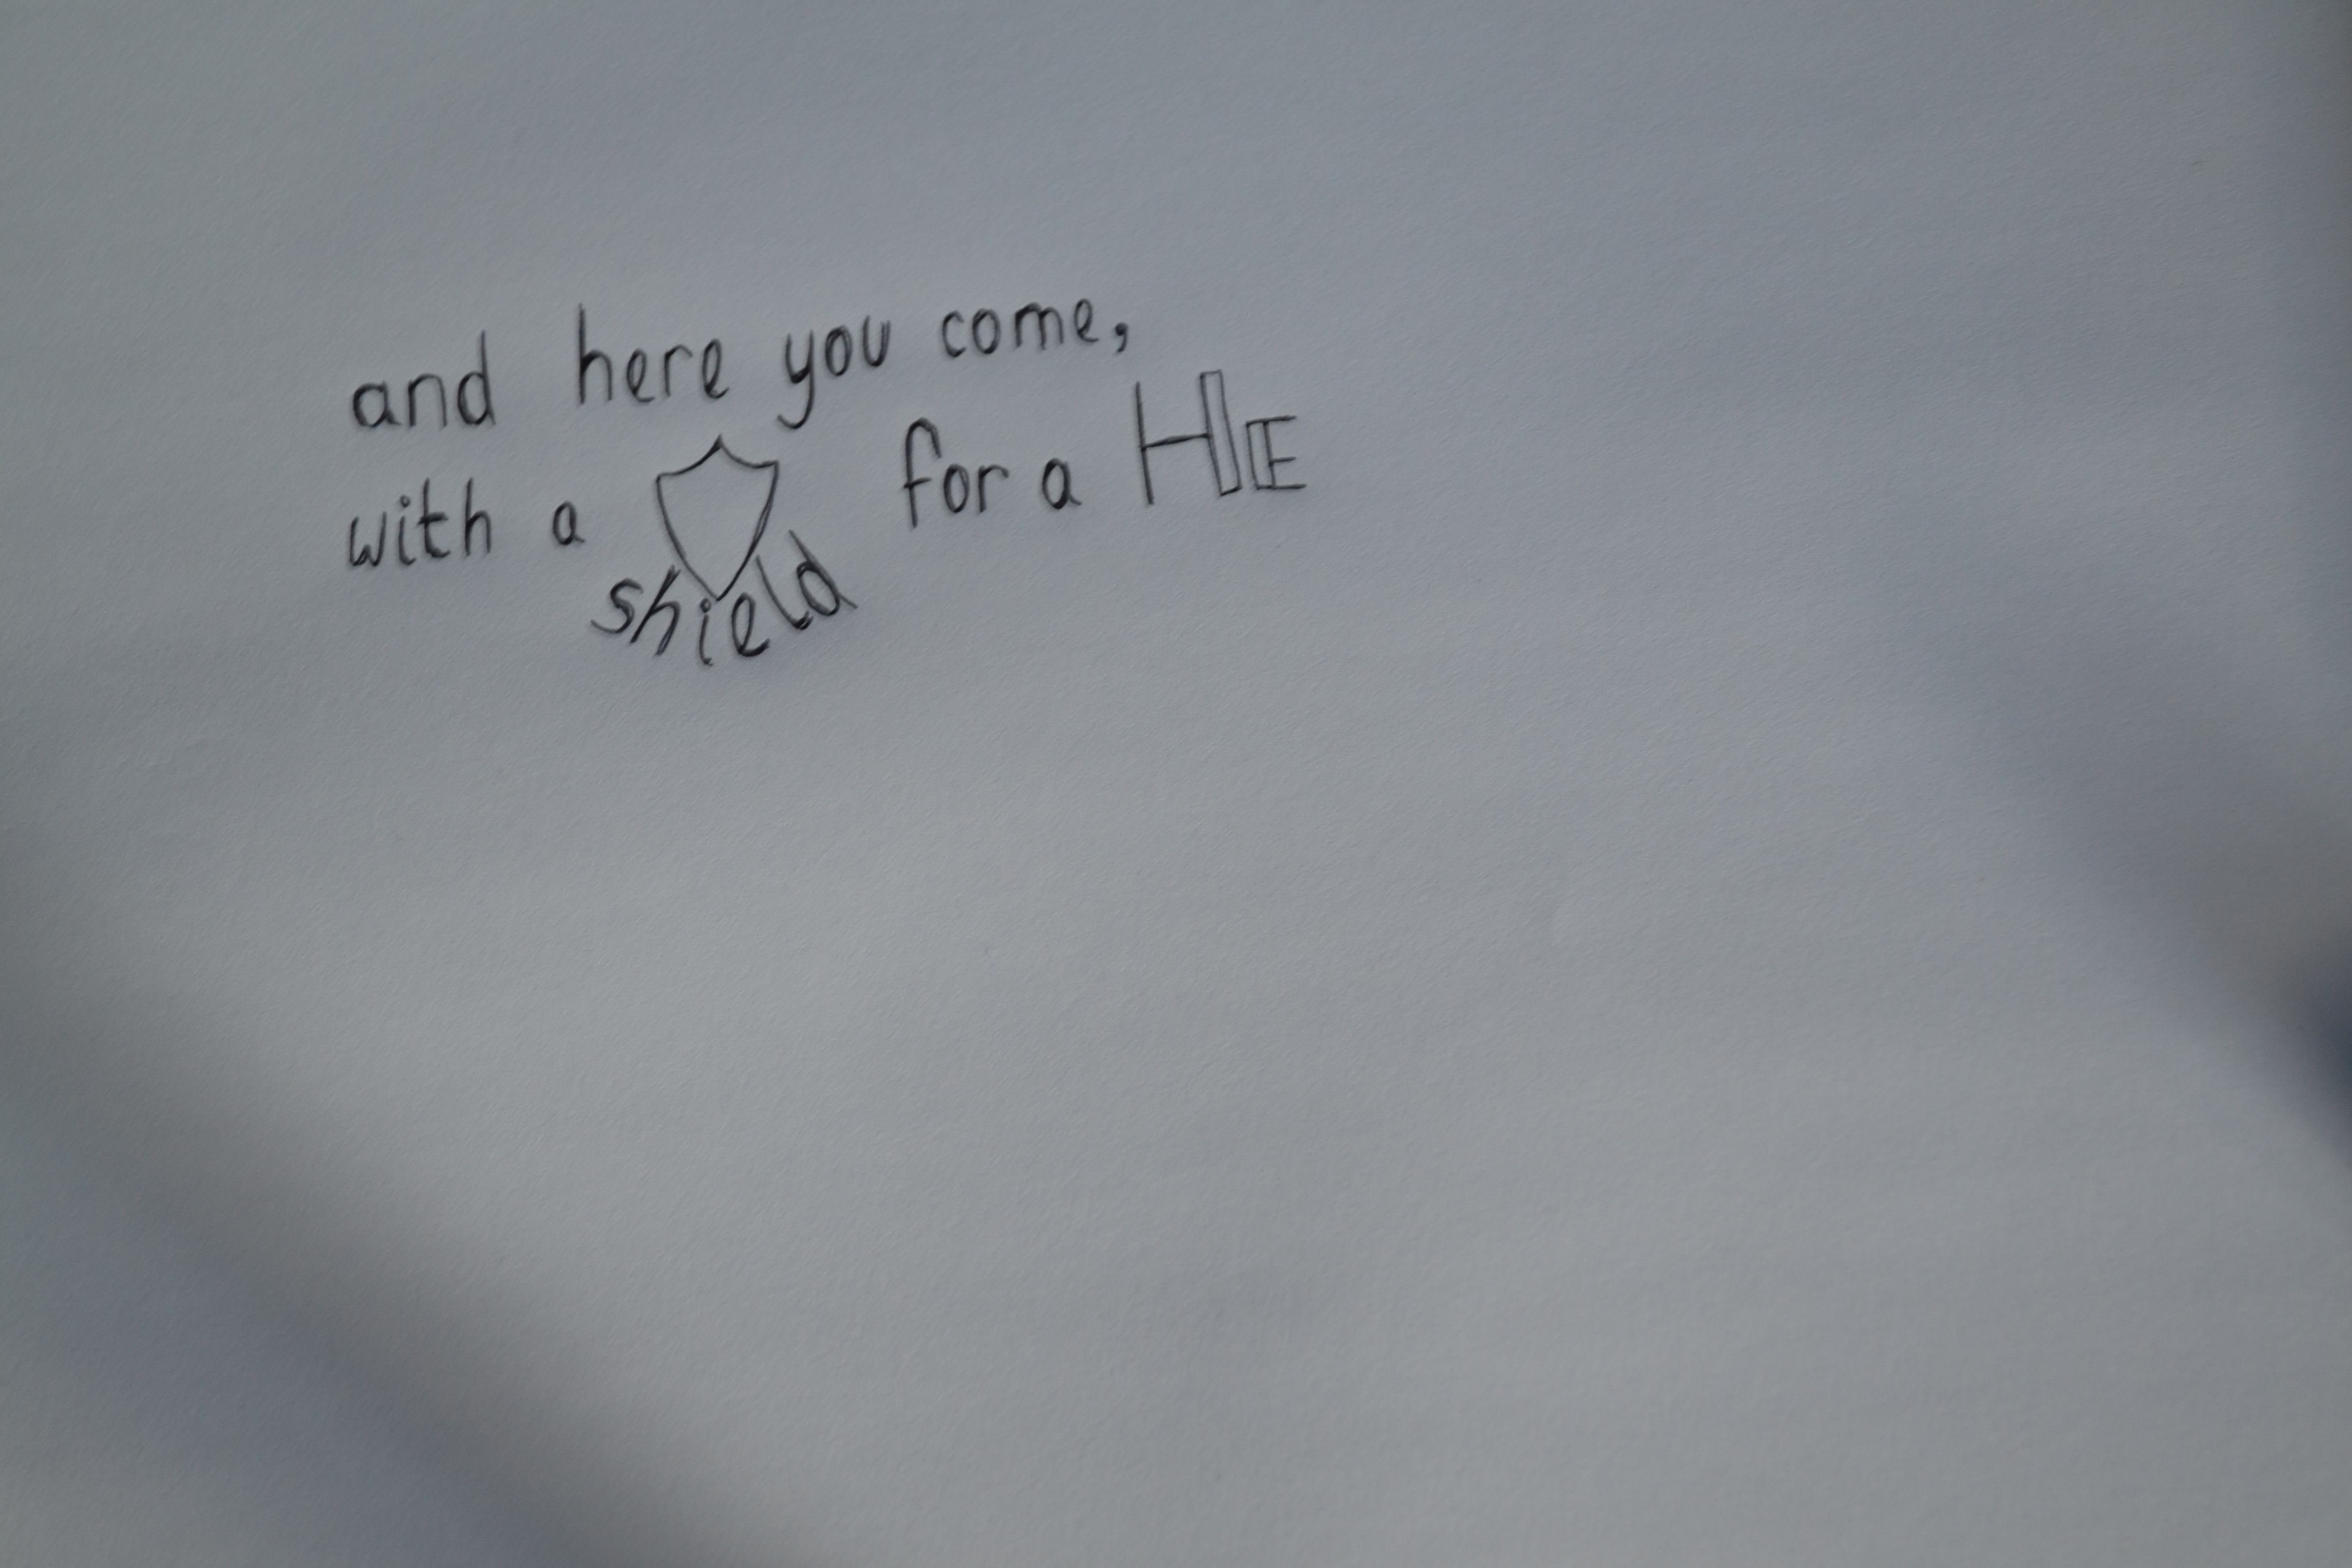 and here you come,
with a shield for a HIE